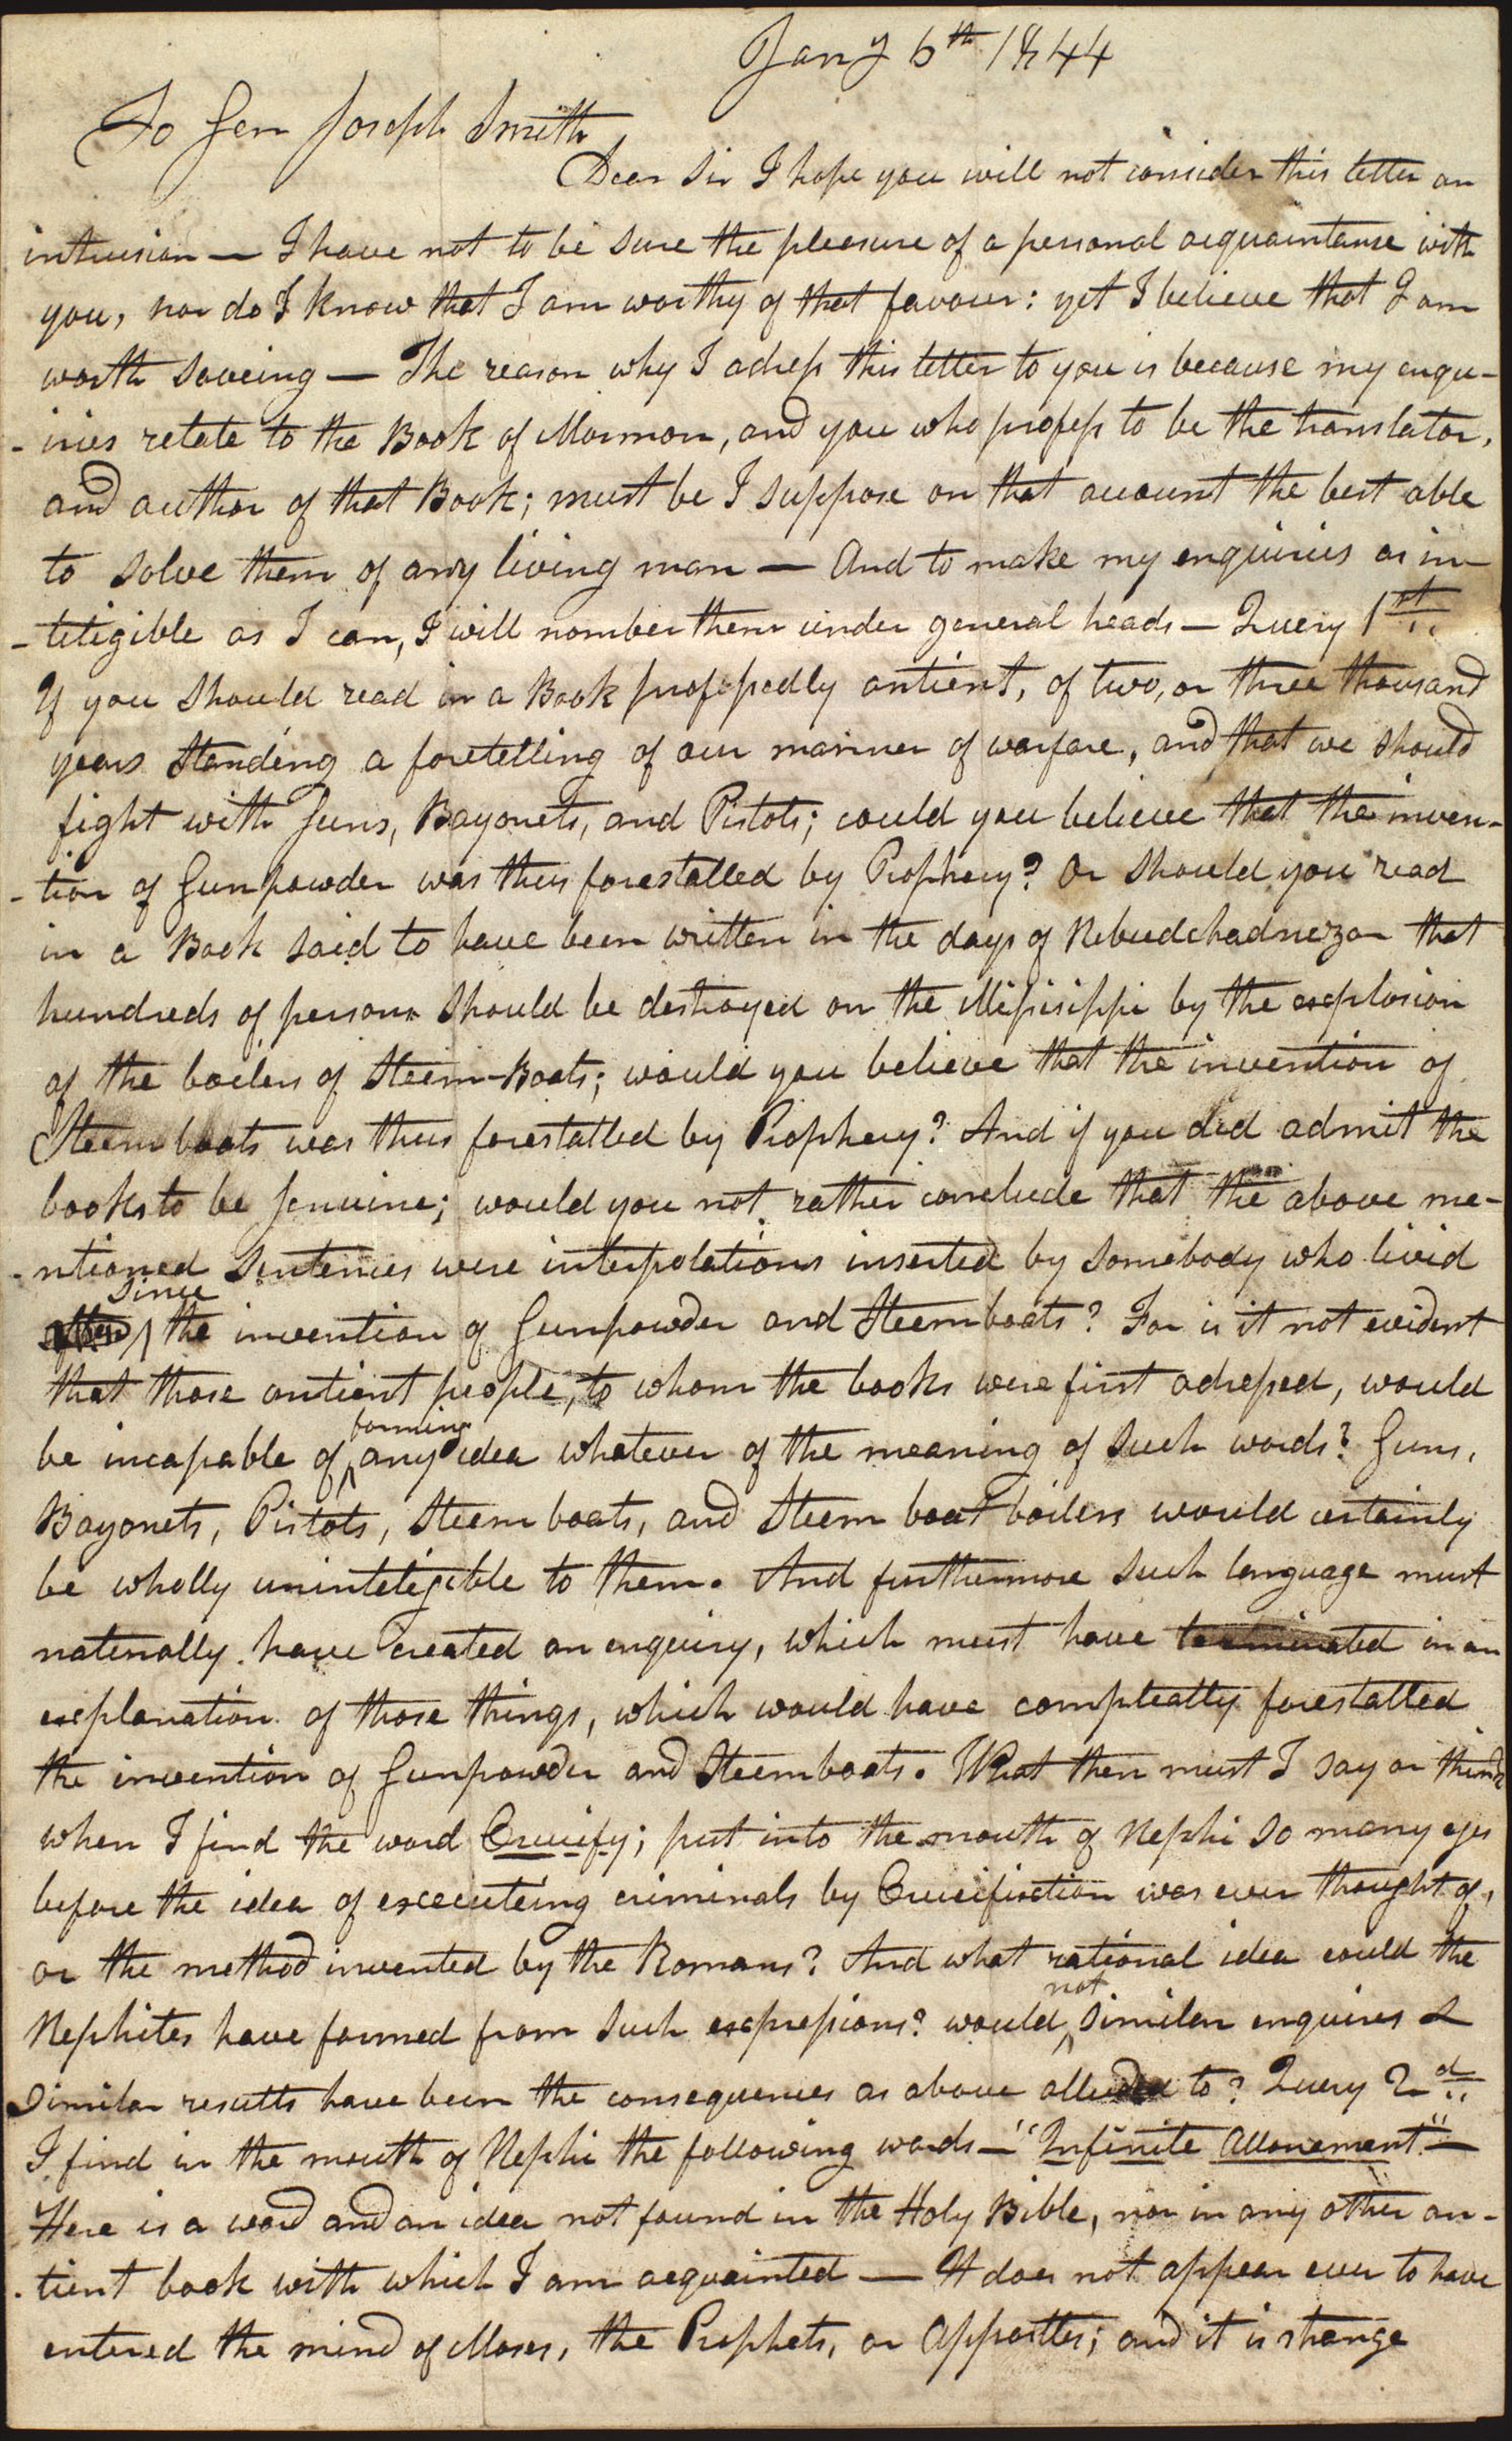 Jany 6th 1844
To Gen Joseph Smith
Dear Sir I hope you will not consider this letter an
intrusion — I have not to be sure the pleasure of a personal acquaintance with
you, nor do I know that I am worthy of that favour: yet I believe that I am
worth saveing — The reason why I adress this letter to you is because my enqu-
-iries relate to the Book of Mormon, and you who profess to be the translator,
and author of that Book; must be I suppose on that account the best able
to solve them of any living man — And to make my enquiries as in-
-teligible as I can, I will nomber them under general heads — Query 1st..
If you should read in a Book professedly antient, of two, or three thousand
years standing a foretelling of our manner of warfare, and that we should
fight with Guns, Bayonets, and Pistols; could you believe that the inven-
-tion of Gunpowder was thus forestalled by Prophecy? Or should you read
in a Book said to have been written in the days of Nebudchadnezar that
hundreds of persons should be destroyed on the Missisippi by the explosion
of the boilers of Steem-Boats; would you believe that the invention of
Steem boats was thus forestalled by Prophecy? And if you did admit the
books to be Genuine; would you not rather conclude that the above me-
-ntioned sentences were interpolations inserted by somebody who livid
since
after the invention of Gunpowder and Steemboats? For is it not evident
that those antient people, to whom the books were first adressed, would
be incapable of forming any idea whatever of the meaning of such words? Guns,
Bayonets, Pistols, Steem boats, and Steem boat boilers would certainly
be wholly uninteligible to them. And furthermore such language must
naterally have created an enquiry, which must have terminated in an
explanation of those things, which would have compleatly forestalled
the invention of Gunpowder and Steemboats. What then must I say or think
when I find the word Crucify; put into the mouth of Nephi so many ages
before the idea of executeing criminals by Crucifiction was ever thought of,
or the method invented by the Romans? And what rational idea could the
Nephites have formed from such expressions? would not similar enquires &
similar results have been the consequences as above alluded to? Query 2d..
I find in the mouth of Nephi the following words — "Infinite attonement" —
Here is a word and an idea not found in the Holy Bible, nor in any other an-
-tient book with which I am acquainted — It does not appear ever to have
entered the mind of Moses, the Prophets, or Appostles; and it is strange